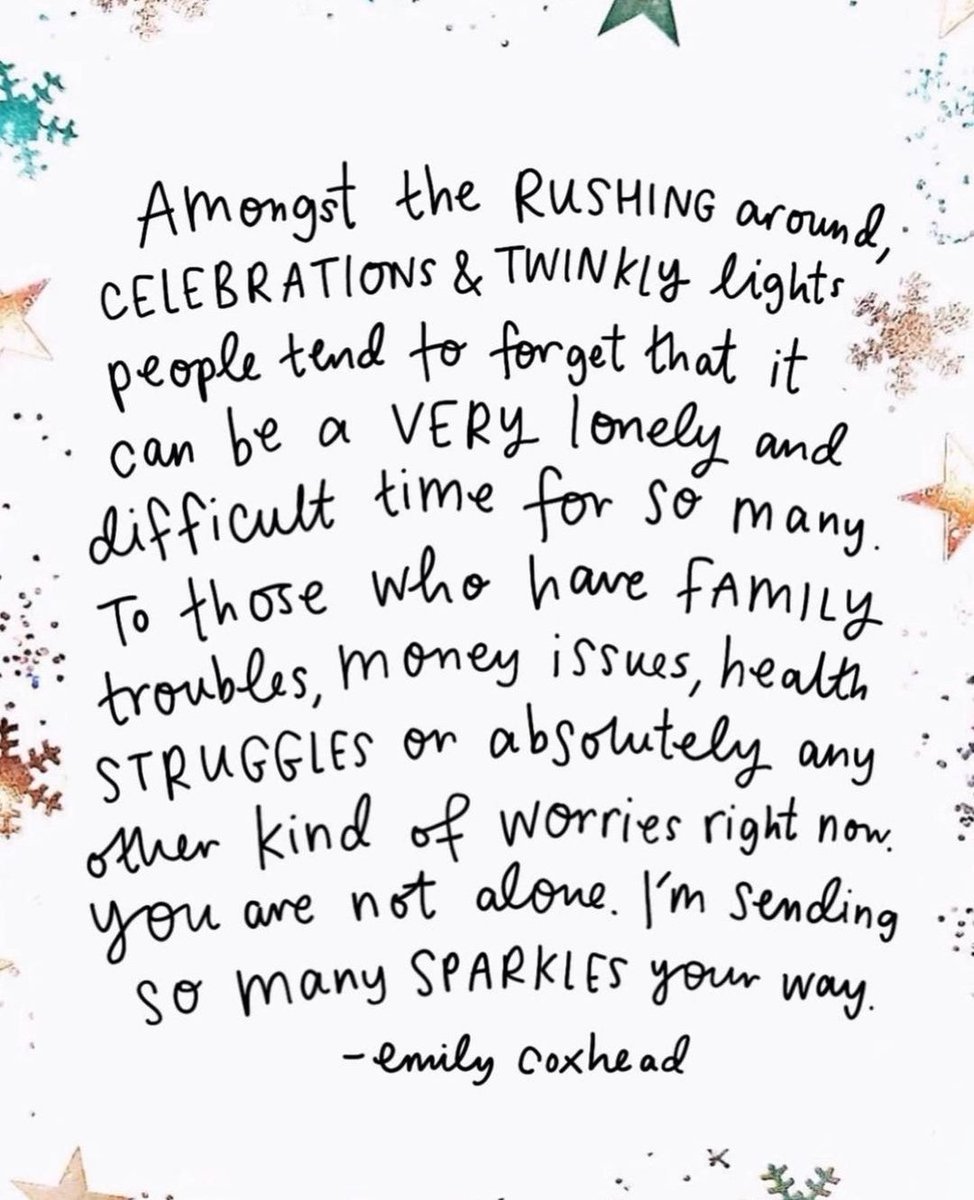 Amongst the RUSHING around,
CELEBRATIONS & TWINKLY lights
people tend to forget that it
can be a VERY lonely and
difficult time for so many.
To those who have FAMILY
troubles, money issues, health
STRUGGLES or absolutely any
other kind of worries right now.
you are not alone. I'm sending
so many SPARKLES your way.
-emily coxhead